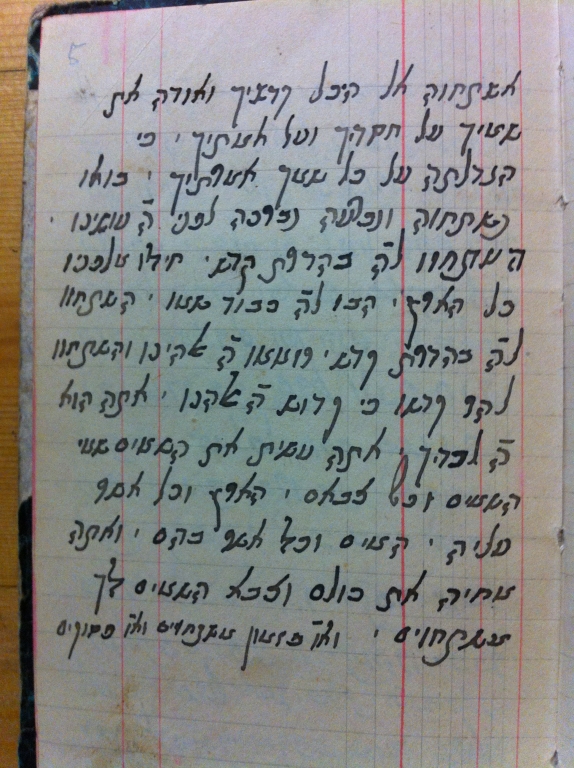 5
אשתחוה אל היכל קדשיך ואודה את
שמיך על חסדך ועל אמתיך ׳ כי
הגדלתה על כל שמך אמרתיך ׳ בואו
נשתחוה ונכרעה נברכה לפני ה׳ עושינו ׳
השתחוו לה׳ בהדרת קדש ׳ חילו מלפניו
כל הארץ ׳ הבו לה׳ כבוד שמו ׳ השתחוו
לה׳ בהדרת קדש ׳ רוממו ה׳ אלהינו והשתחוו
להר קדשו כי קדוש ה׳ אלהנו ׳ אתה הוא
ה׳ לבדיך ׳ אתה עשית את השמים שמי
השמים וכל צבאם ׳ הארץ וכל אשר
עליה ׳ הימים וכל אשר בהם ׳ ואתה
מחיה את כולם וצבא השמים לך
משתחוים ׳ ואו׳ מזמון שמשתחוים ואו׳ פסוקים